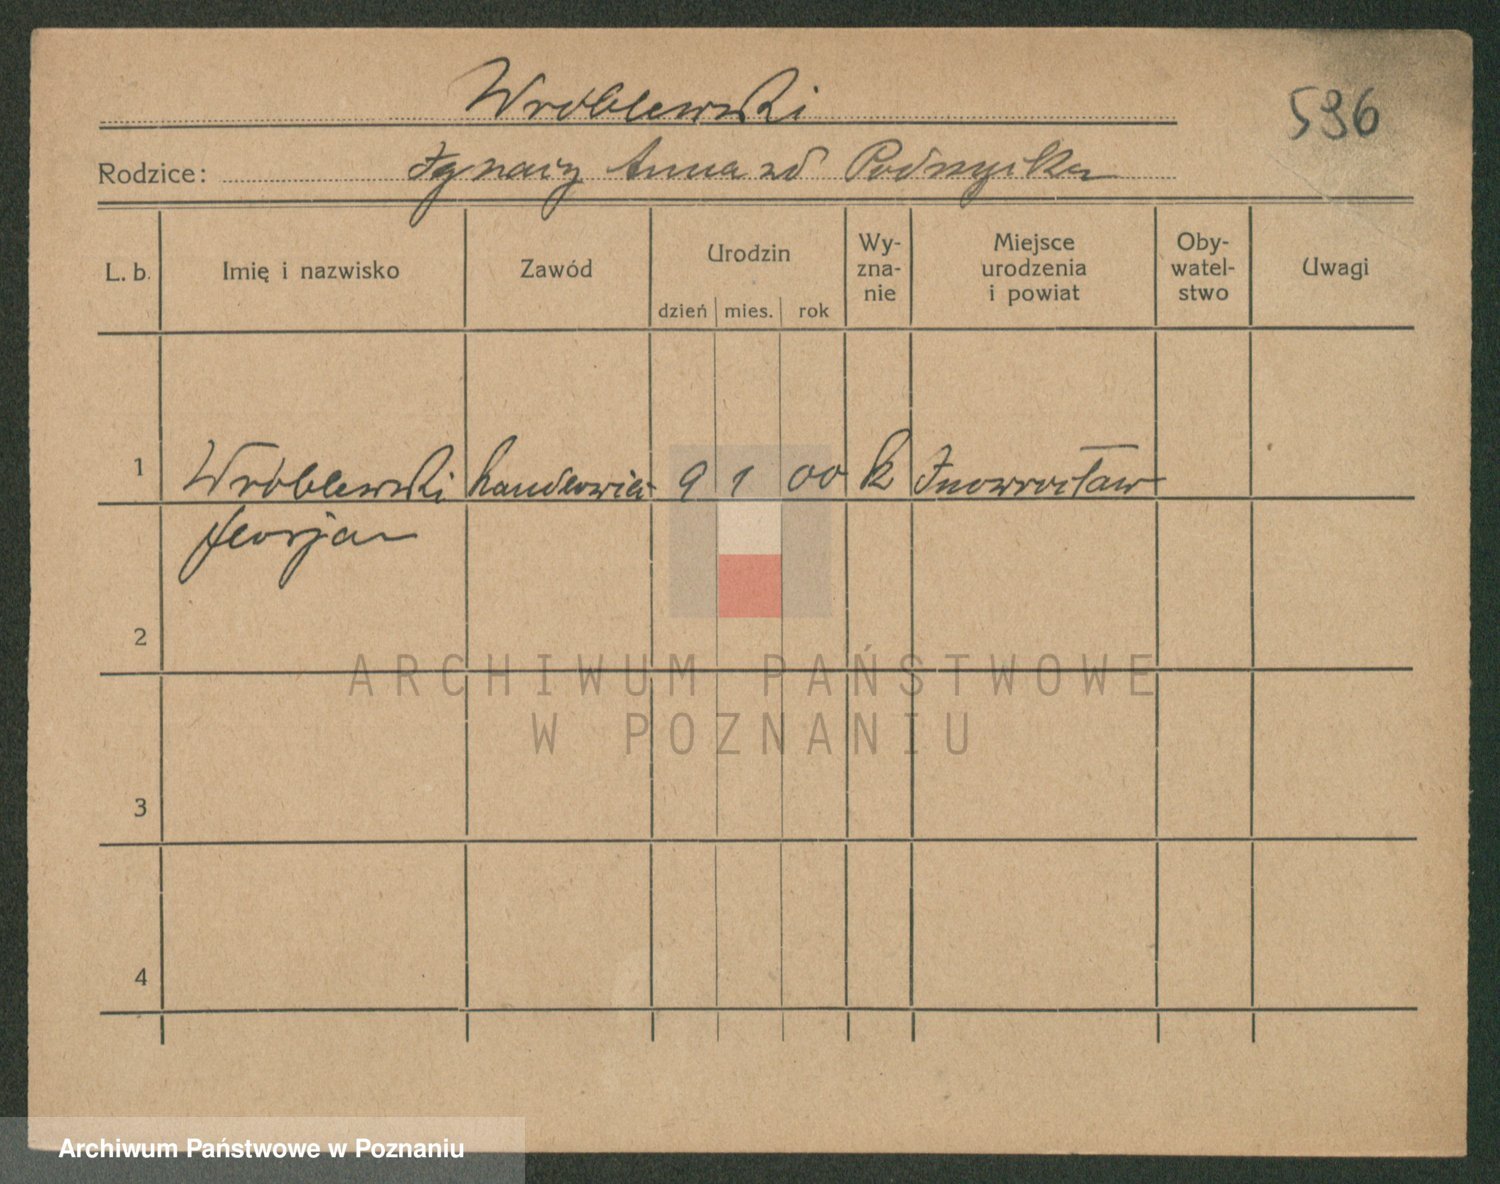 Wróblewski
536
Rodzice: Ignacy Anna zd
L. b. Imię i nazwisko Zawód Urodzin Wy- zna- nie Miejsce urodzenia i powiat Oby- watel- stwo Uwagi
dzień mies. rok
1 Wróblewski handlowiec 9 1 00 k Inowrocław
Florjan
2
ARCHIWUM PAŃSTWOWE
W POZNANIU
3
4
Archiwum Państwowe w Poznaniu